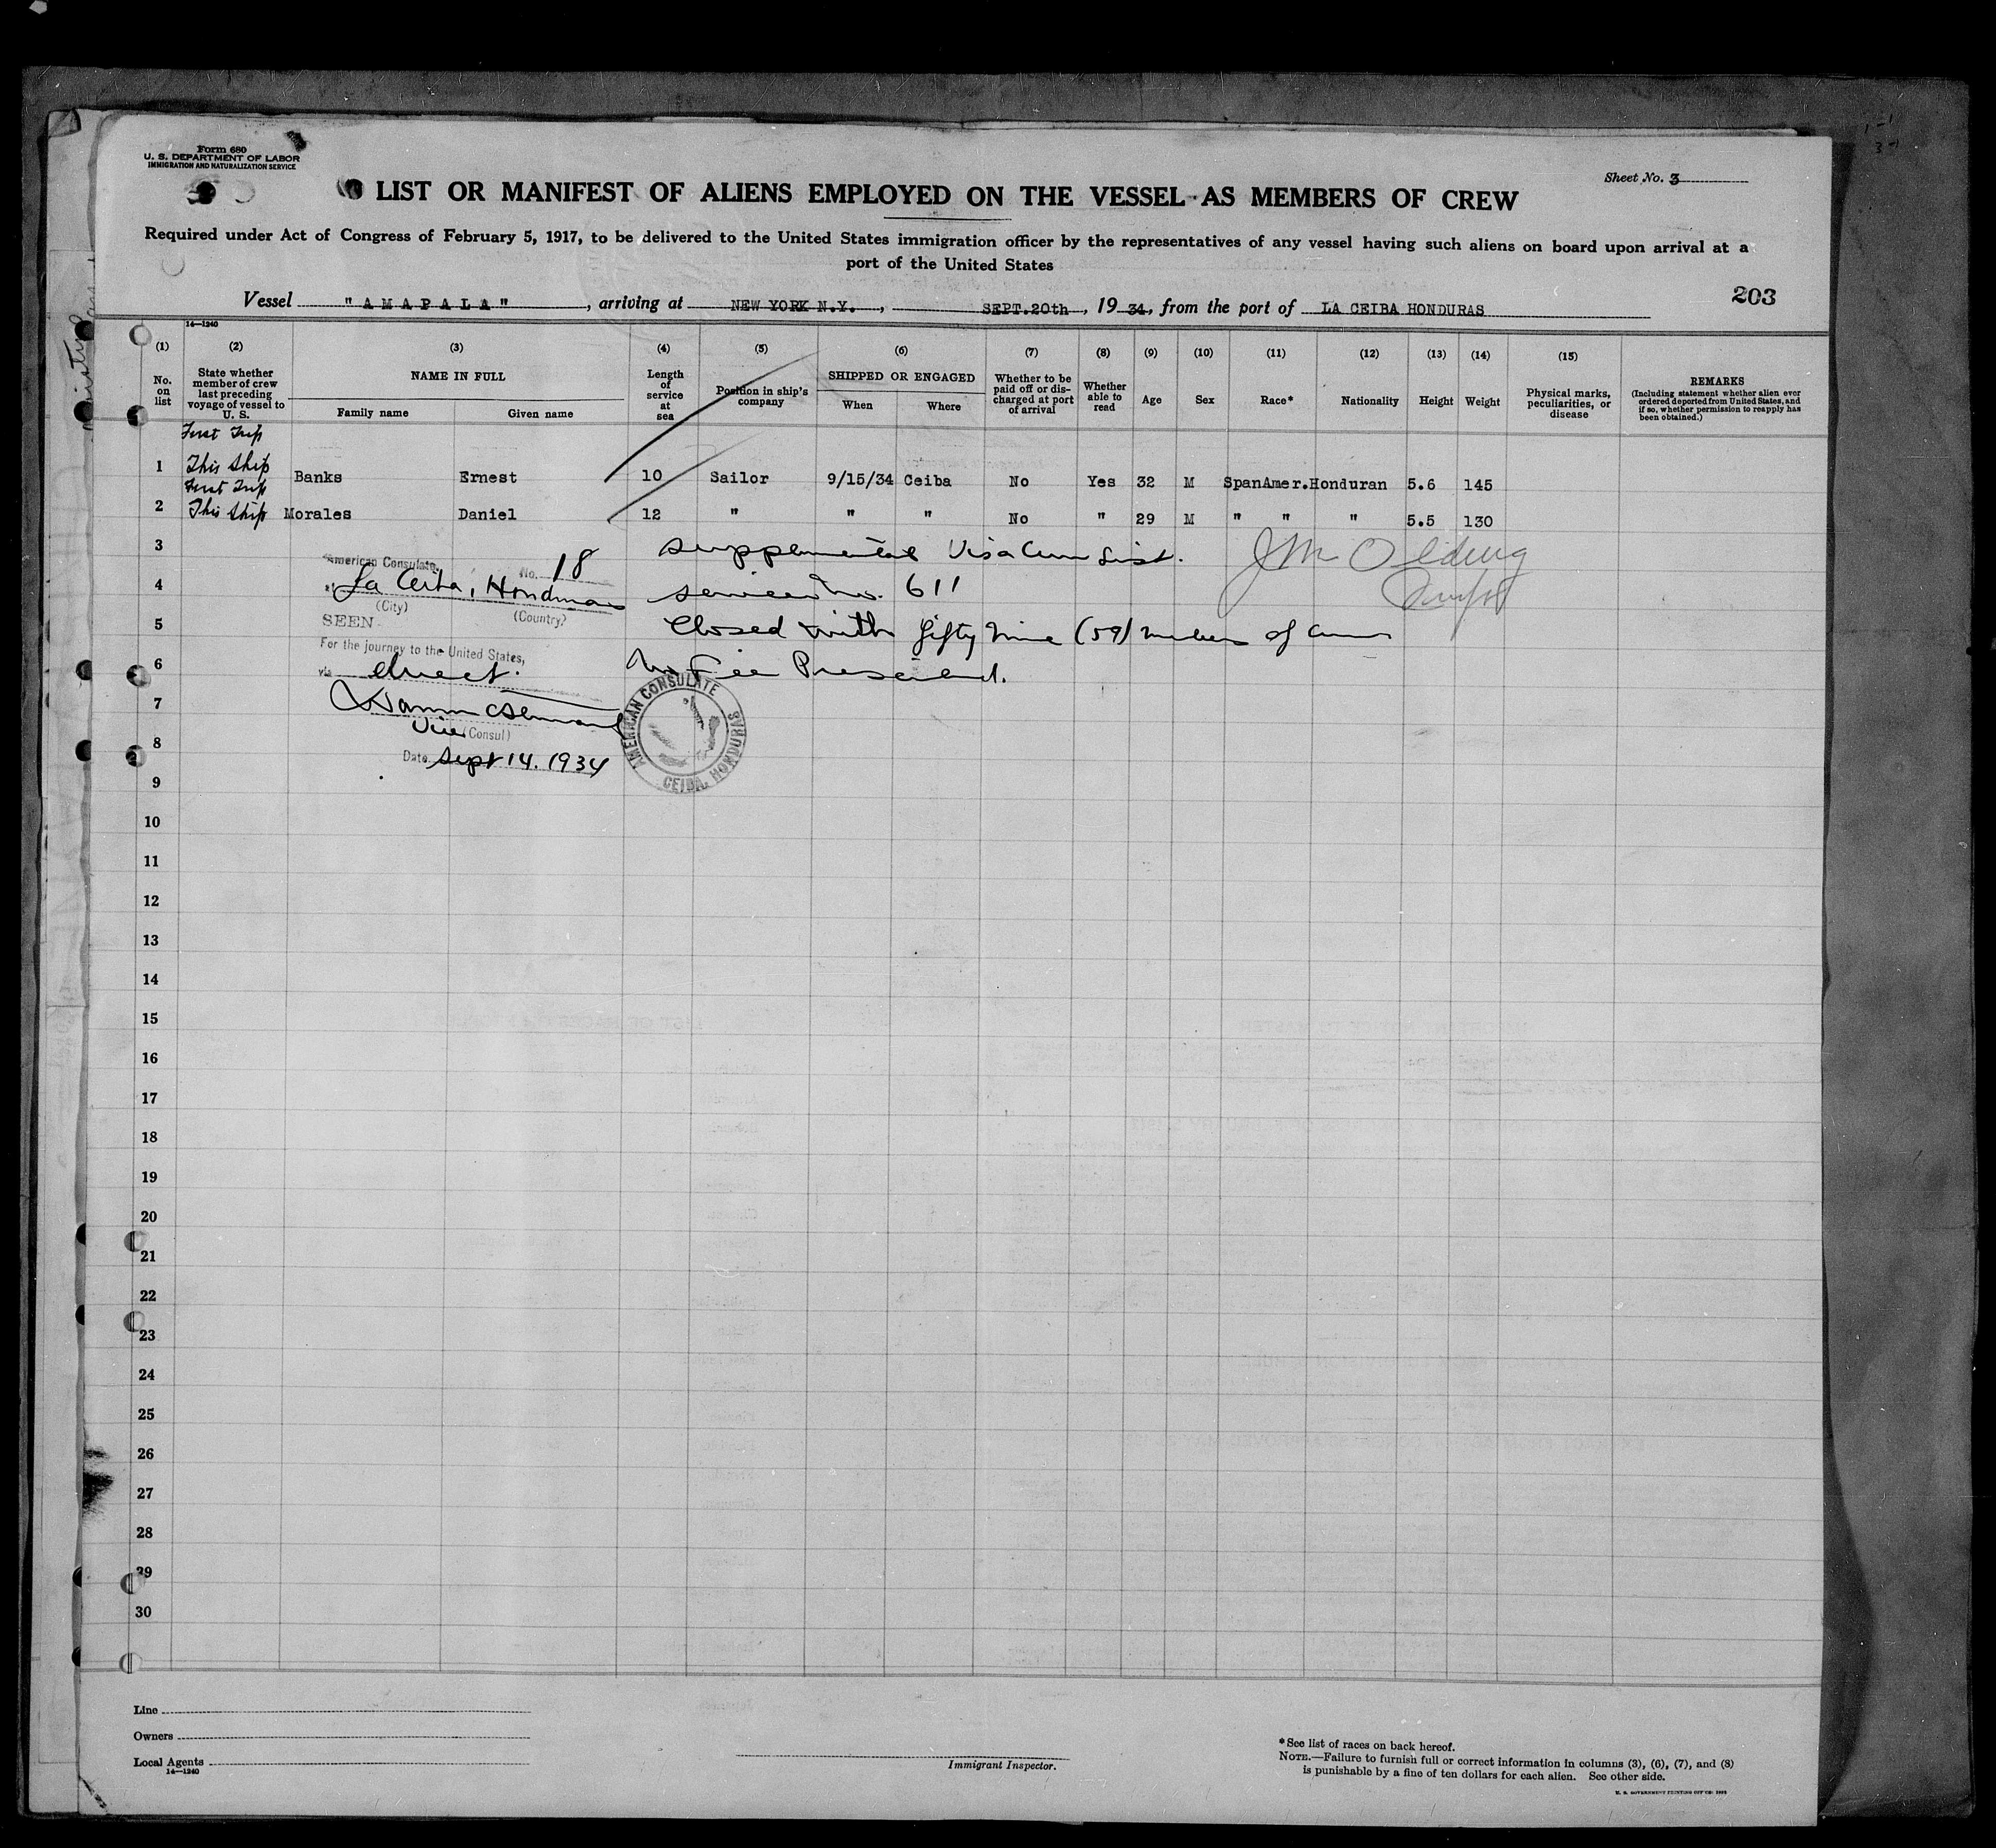 Form 680
U. S. DEPARTMENT OF LABOR
IMMIGRATION AND NATURALIZATION SERVICE
Sheet No. 3
LIST OR MANIFEST OF ALIENS EMPLOYED ON THE VESSEL AS MEMBERS OF CREW
Required under Act of Congress of February 5, 1917, to be delivered to the United States immigration officer by the representatives of any vessel having such aliens on board upon arrival at a
port of the United States
Vessel "AMAPALA", arriving at NEW YORK N.Y., SEPT.20th, 1934, from the port of LA CEIBA HONDURAS
203
14—1240
(1) (2) (3) (4) (5) (6) (7) (8) (9) (10) (11) (12) (13) (14) (15)
No. on list
State whether member of crew last preceding voyage of vessel to U. S.
NAME IN FULL
Family name
Given name
Length of service at sea
Position in ship's company
SHIPPED OR ENGAGED
When
Where
Whether to be paid off or discharged at port of arrival
Whether able to read
Age
Sex
Race*
Nationality
Height
Weight
Physical marks, peculiarities, or disease
REMARKS
(Including statement whether alien ever ordered deported from United States, and if so, whether permission to reapply has been obtained.)
First Trip
1 This Ship Banks Ernest 10 Sailor 9/15/34 Ceiba No Yes 32 M SpanAmer. Honduran 5.6 145
First Trip
2 This Ship Morales Daniel 12 " " " No " 29 M " " " 5.5 130
3 supplemental Visa Crew List.
American Consulate, No. 18
4 at La Ceiba, Honduras service No. 611
(City) (Country)
5 SEEN Closed with fifty nine (59) members of crew
For the journey to the United States,
6 via direct. No Fee Prescribed.
7
Vice (Consul)
8 Date Sept 14. 1934
AMERICAN CONSULATE
CEIBA, HONDURAS
9
10
11
12
13
14
15
16
17
18
19
20
21
22
23
24
25
26
27
28
29
30
Line
Owners
Local Agents
14—1240
Immigrant Inspector.
*See list of races on back hereof.
NOTE.—Failure to furnish full or correct information in columns (3), (6), (7), and (8)
is punishable by a fine of ten dollars for each alien. See other side.